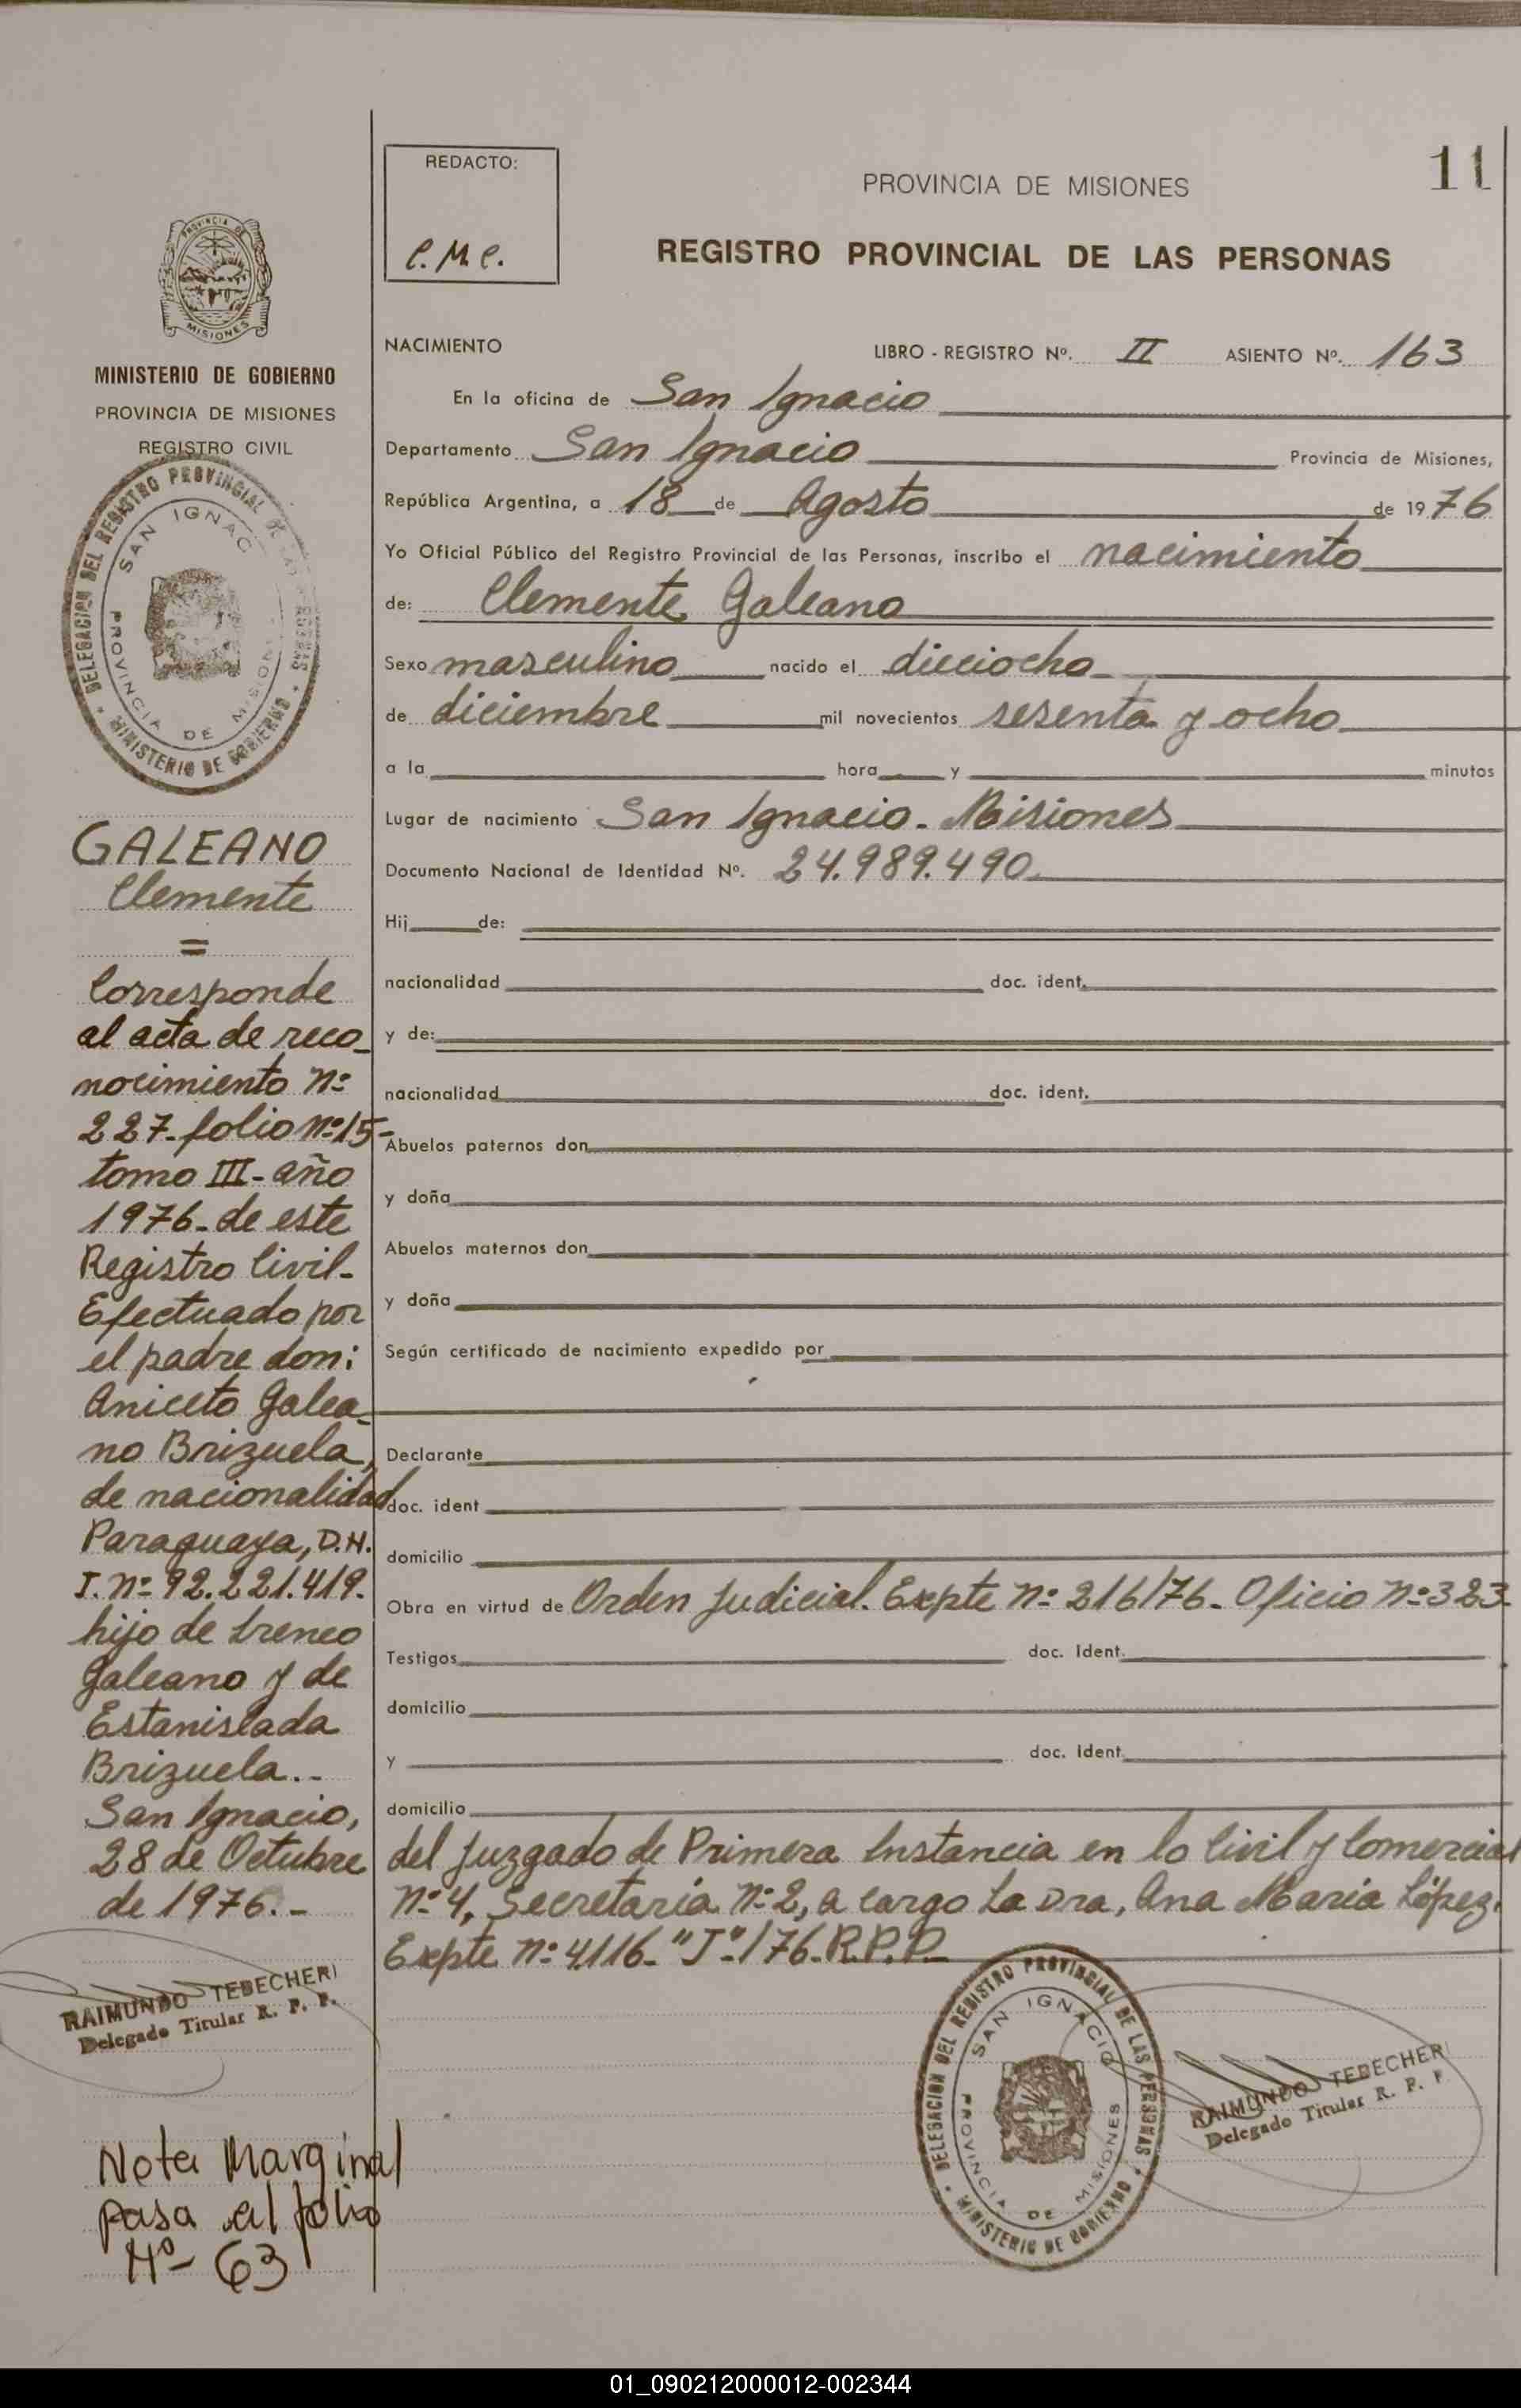 11
REDACTO:
C.M.C.
PROVINCIA DE MISIONES
REGISTRO PROVINCIAL DE LAS PERSONAS
PROVINCIA DE
MISIONES
MINISTERIO DE GOBIERNO
PROVINCIA DE MISIONES
REGISTRO CIVIL
DELEGACION DEL REGISTRO PROVINCIAL DE LAS PERSONAS
SAN IGNACIO
PROVINCIA DE MISIONES
MINISTERIO DE GOBIERNO
GALEANO
Clemente
=
Corresponde
al acta de reco-
nocimiento Nº
227- folio Nº 15-
tomo III- año
1976- de este
Registro Civil-
Efectuado por
el padre don:
Aniceto Galea-
no Brizuela,
de nacionalidad
Paraguaya, D.N.
I. Nº 92.221.419.
hijo de Ireneo
Galeano y de
Estanislada
Brizuela.-
San Ignacio,
28 de Octubre
de 1976.-
RAIMUNDO TEBECHERI
Delegado Titular R. P. P.
Nota Marginal
pasa al folio
Nº- 63
NACIMIENTO LIBRO - REGISTRO Nº. II ASIENTO Nº. 163
En la oficina de San Ignacio
Departamento San Ignacio Provincia de Misiones,
República Argentina, a 18 de Agosto de 1976
Yo Oficial Público del Registro Provincial de las Personas, inscribo el nacimiento
de: Clemente Galeano
Sexo masculino nacido el dieciocho
de diciembre mil novecientos sesenta y ocho
a la hora y minutos
Lugar de nacimiento San Ignacio. Misiones
Documento Nacional de Identidad Nº. 24.989.490
Hij de:
nacionalidad doc. ident.
y de:
nacionalidad doc. ident.
Abuelos paternos don
y doña
Abuelos maternos don
y doña
Según certificado de nacimiento expedido por
Declarante
doc. ident
domicilio
Obra en virtud de Orden Judicial. Expte Nº 216/76- Oficio Nº 323-
Testigos doc. Ident.
domicilio
y doc. Ident.
domicilio
del Juzgado de Primera Instancia en lo Civil y Comercial
Nº 4, Secretaría Nº 2, a cargo La Dra, Ana Maria López.
Expte Nº 4116- "J"/76- R.P.P.
DELEGACION DEL REGISTRO PROVINCIAL DE LAS PERSONAS
SAN IGNACIO
PROVINCIA DE MISIONES
MINISTERIO DE GOBIERNO
RAIMUNDO TEBECHERI
Delegado Titular R. P. P.
01_090212000012-002344